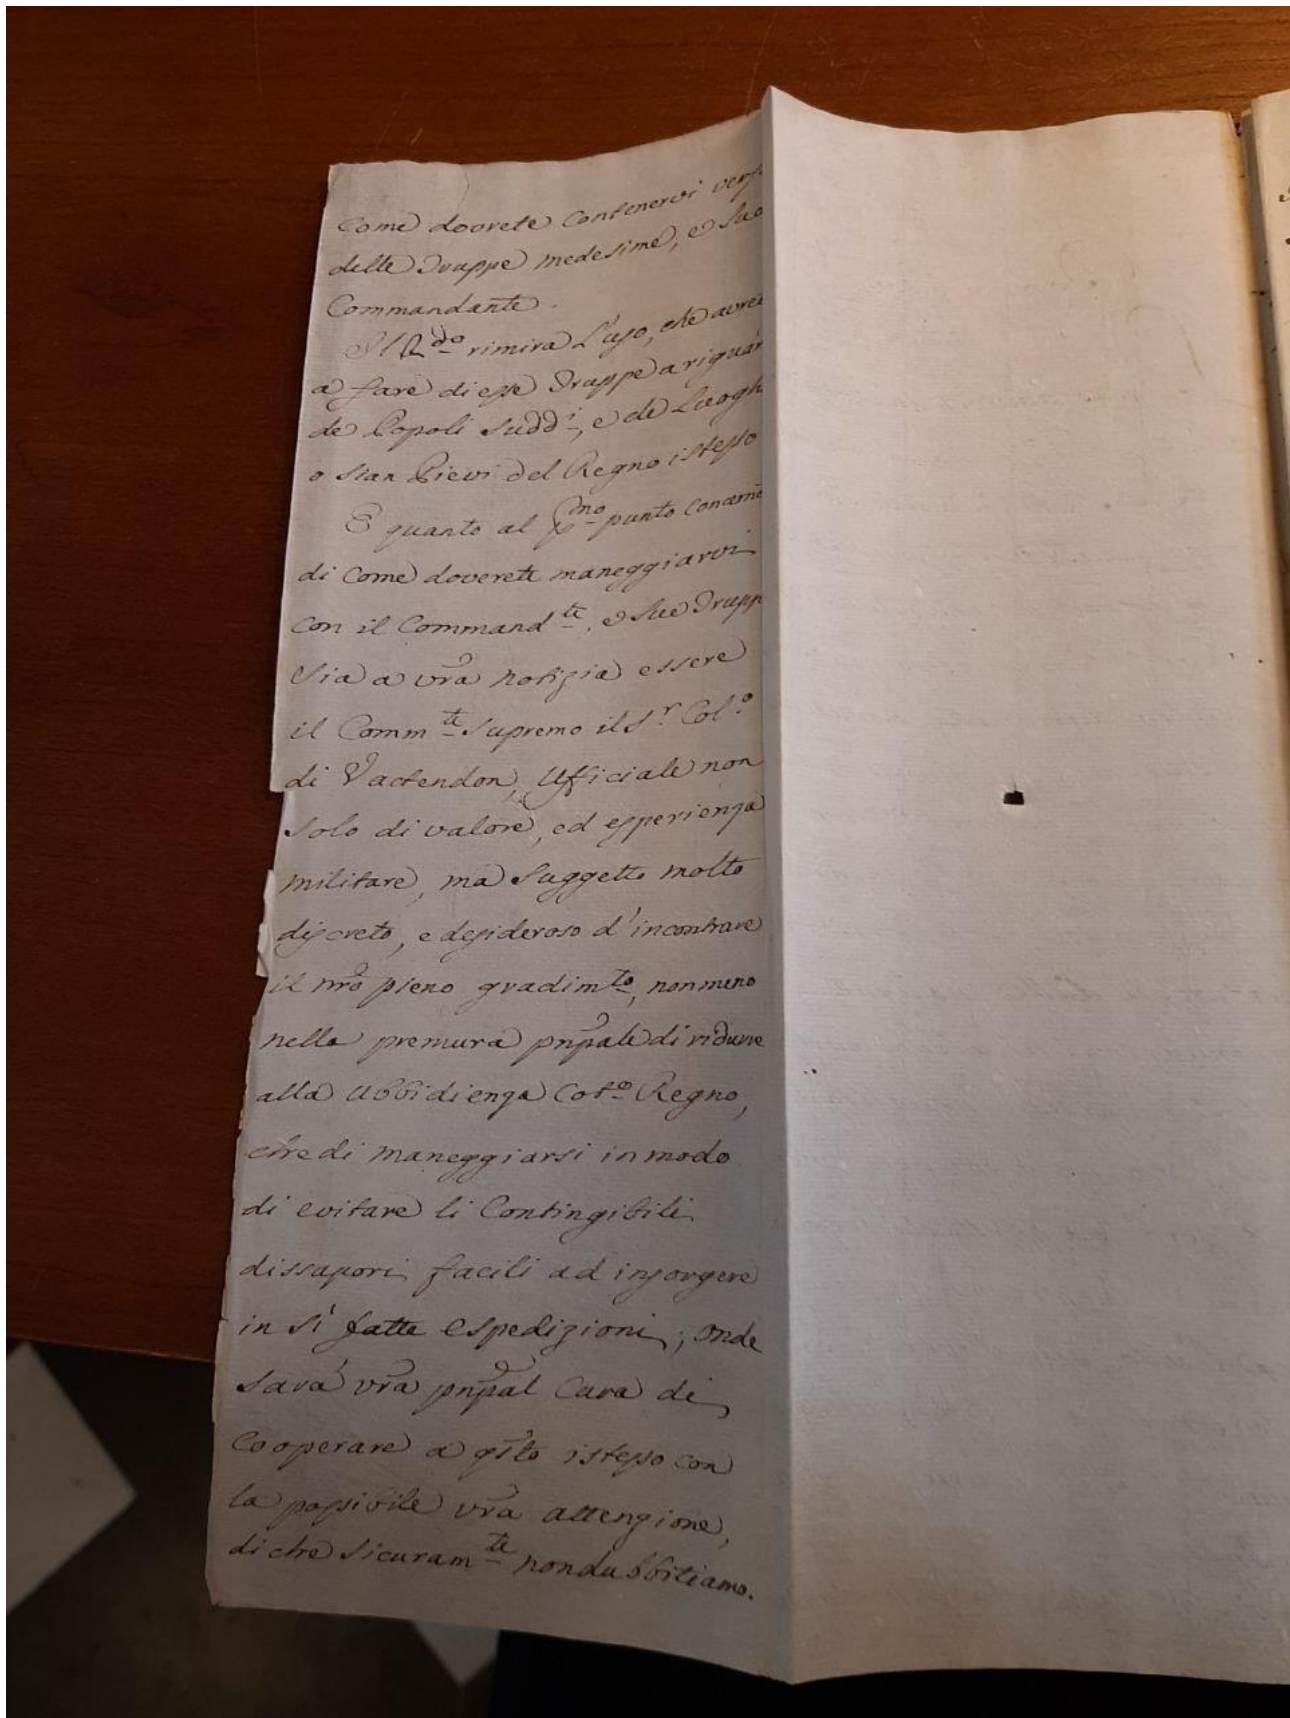 Come dovrete Contenervi vers
delle Truppe medesime, e suo
Commandante.
Il 2.do rimira l'uso, che avre
a fare di esse Truppe a riguar
de Popoli sudd.i, e de Luogh
o sian Pievi del Regno istesso
E quanto al pmo punto concerne
di Come doverete maneggiarvi
con il Command.te, e sue Trupp
sia a vra notizia essere
il Comm.te supremo il S.r Col.o
di Vactendon, Ufficiale non
solo di valore, ed esperienza
militare, ma suggetto molto
discreto, e desideroso d'incontrare
il nro pieno gradim.to, non meno
nella premura pnpale di ridurre
alla ubbidienza Cot.o Regno,
che di maneggiarsi in modo
di evitare li Contingibili
dissapori facili ad insorgere
in sì fatte espedizioni; onde
sarà vra pnpal Cura di
Cooperare a qsto istesso con
la possibile vra attenzione,
di che sicuram.te non dubbitiamo.